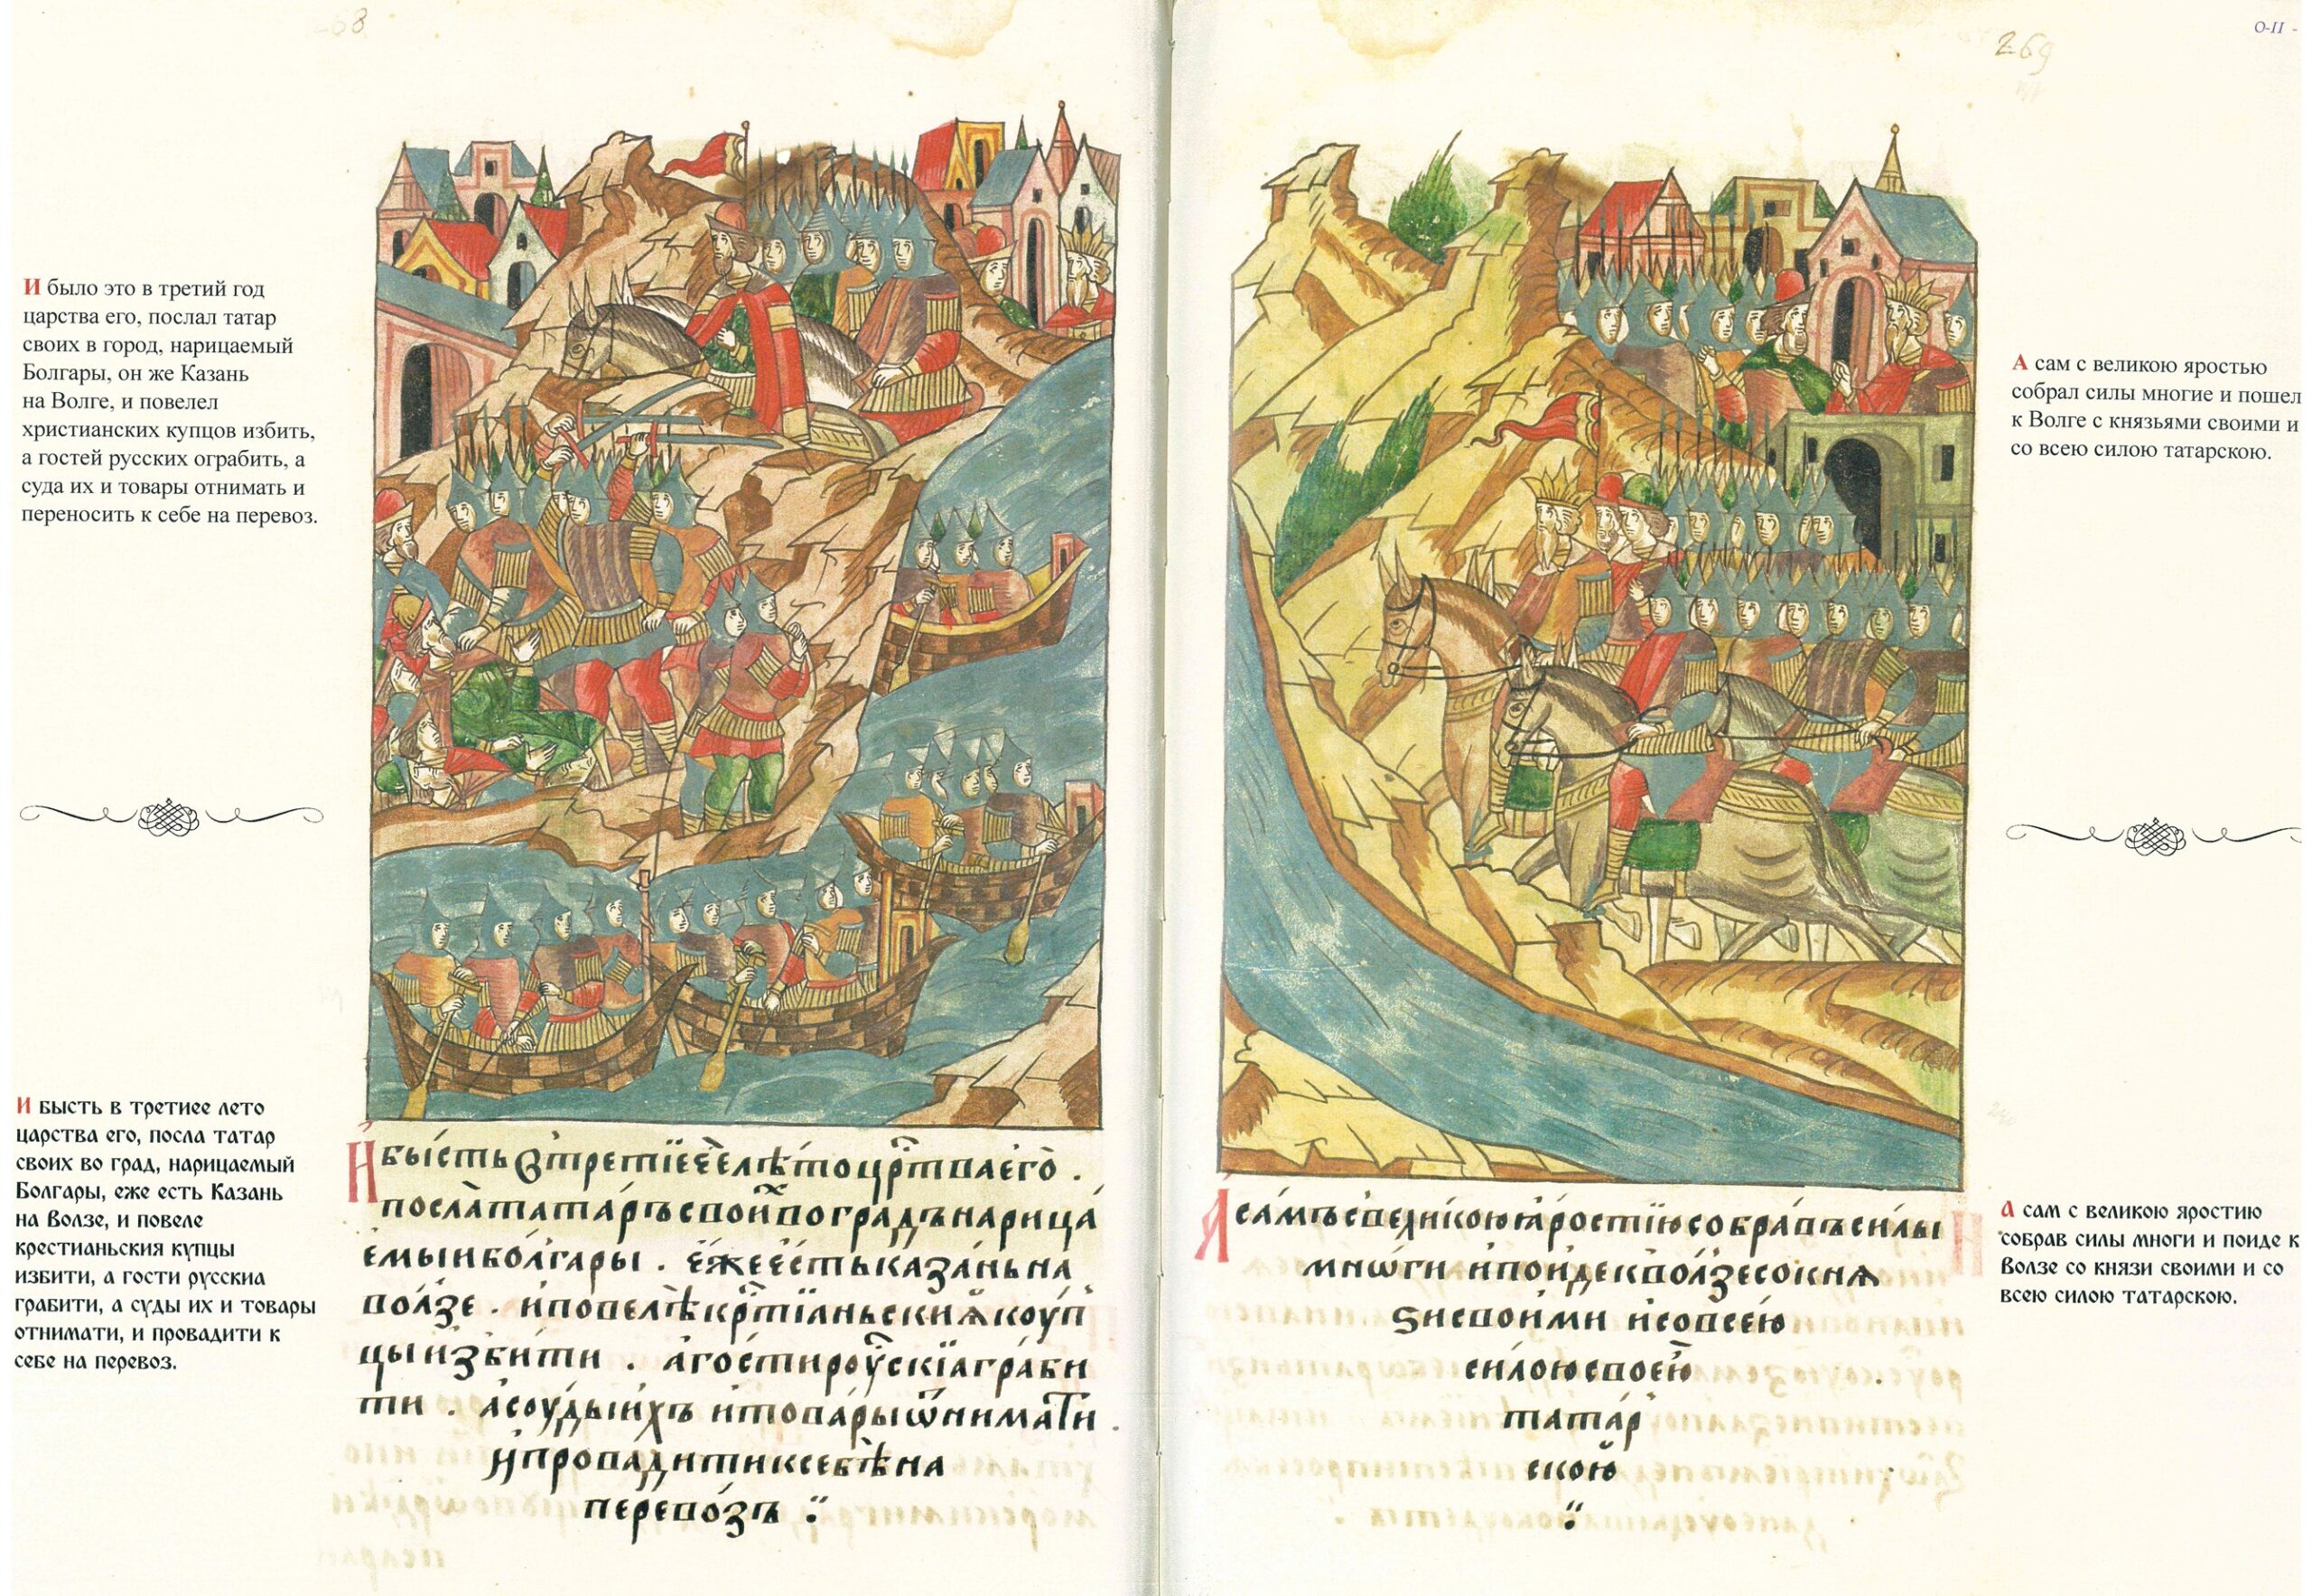 268
И было это в третий год
царства его, послал татар
своих в город, нарицаемый
Болгары, он же Казань
на Волге, и повелел
христианских купцов избить,
а гостей русских ограбить, а
суда их и товары отнимать и
переносить к себе на перевоз.
И бысть в третиее лето
царства его, посла татар
своих во град, нарицаемый
Болгары, еже есть Казань
на Волзе, и повеле
крестианьския купцы
избити, а гости русскиа
грабити, а суды их и товары
отнимати, и провадити к
себе на перевоз.
И бысть втретїеелѣто црⷭ҇тваего .
посла татаръ свои́ воградъ нарица
емыи болгары . еже есть казань на
волзе . и повелѣ крⷭ҇тїаньскиѧ коуп
цы избити . а гости роу́скїа граби
ти . а соуды ихъ и товары ѿнимати .
и провадити ксебѣ на
перевозъ :
О-II -
269
А сам с великою яростью
собрал силы многие и пошел
к Волге с князьями своими и
со всею силою татарскою.
А сам с великою яростию
собрав силы многи и поиде к
Волзе со князи своими и со
всею силою татарскою.
А самъ свеликою ꙗростїю собравъ силы
мнѡги и поиде к волзе со кнѧ
ѕи своими и со всею
силою своею
татар
скою